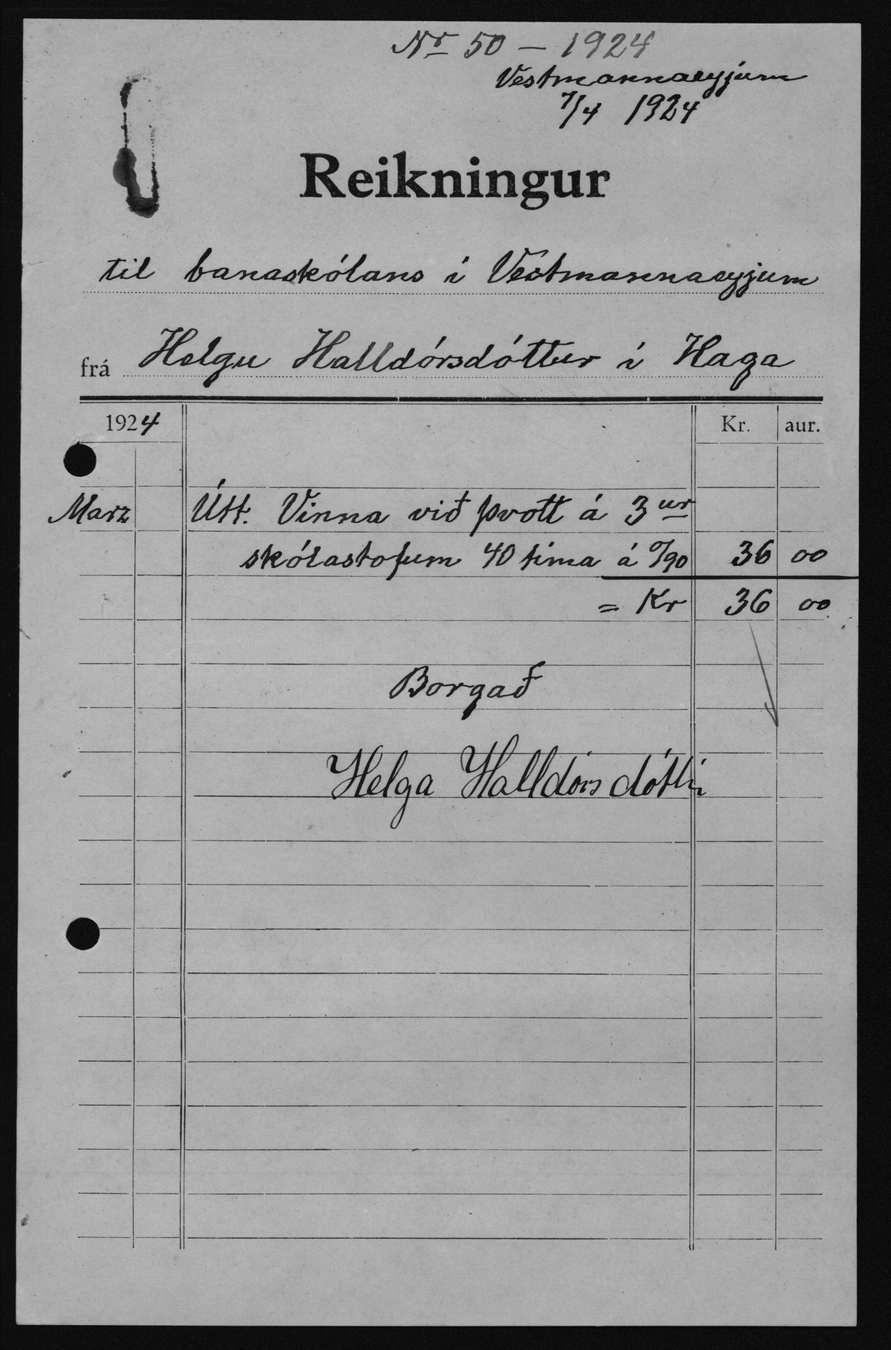 Nr 50 – 1924
Vestmannaeyjum
7/4 1924
Reikningur
til barnaskólans í Vestmannaeyjum
frá Helgu Halldórsdóttur í Haga
1924 Kr. aur.
Marz Útt. Vinna við þvott á 3 ur
skólastofum 40 tíma á 0/90 36 00
= Kr 36 00
Borgað
Helga Halldórsdóttir